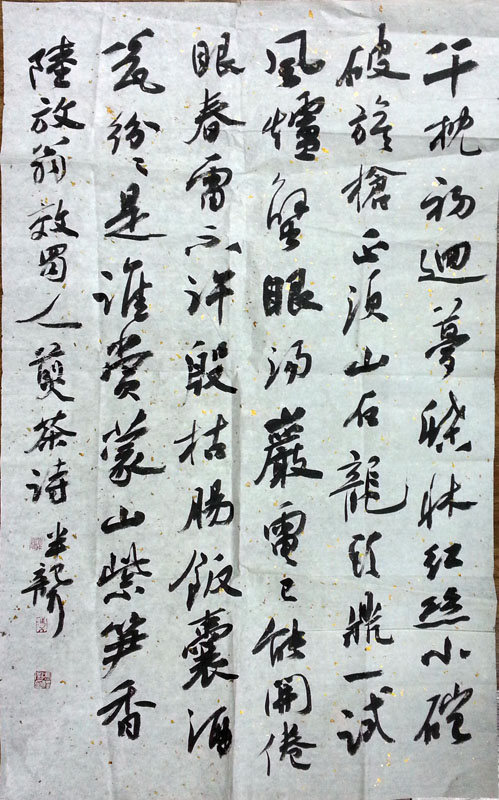 午枕初迴夢蝶牀紅絲小磑
破旗槍正須山石龍頭鼎一試
風爐蟹眼湯巖電已能開倦
眼春雷不許殷枯腸飯囊酒
瓮紛〻是誰賞蒙山紫笋香
陸放翁效蜀人煎茶詩